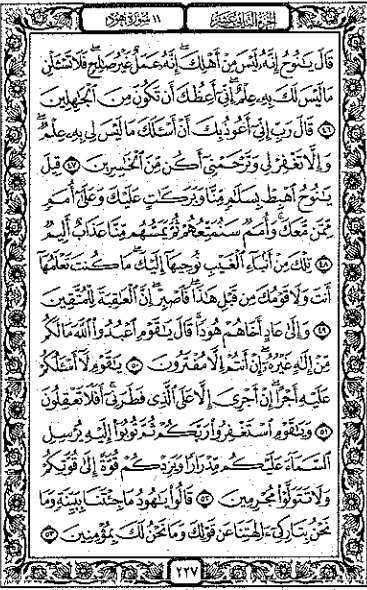 الجزء الثاني عشر
١١ سورة هود
قَالَ يَـٰنُوحُ إِنَّهُۥ لَيْسَ مِنْ أَهْلِكَ ۖ إِنَّهُۥ عَمَلٌ غَيْرُ صَـٰلِحٍ ۖ فَلَا تَسْـَٔلْنِ
مَا لَيْسَ لَكَ بِهِۦ عِلْمٌ ۖ إِنِّىٓ أَعِظُكَ أَن تَكُونَ مِنَ ٱلْجَـٰهِلِينَ
﴿٤٦﴾ قَالَ رَبِّ إِنِّىٓ أَعُوذُ بِكَ أَنْ أَسْـَٔلَكَ مَا لَيْسَ لِى بِهِۦ عِلْمٌ ۖ
وَإِلَّا تَغْفِرْ لِى وَتَرْحَمْنِىٓ أَكُن مِّنَ ٱلْخَـٰسِرِينَ ﴿٤٧﴾ قِيلَ
يَـٰنُوحُ ٱهْبِطْ بِسَلَـٰمٍ مِّنَّا وَبَرَكَـٰتٍ عَلَيْكَ وَعَلَىٰٓ أُمَمٍ
مِّمَّن مَّعَكَ ۚ وَأُمَمٌ سَنُمَتِّعُهُمْ ثُمَّ يَمَسُّهُم مِّنَّا عَذَابٌ أَلِيمٌ
﴿٤٨﴾ تِلْكَ مِنْ أَنۢبَآءِ ٱلْغَيْبِ نُوحِيهَآ إِلَيْكَ ۖ مَا كُنتَ تَعْلَمُهَآ
أَنتَ وَلَا قَوْمُكَ مِن قَبْلِ هَـٰذَا ۖ فَٱصْبِرْ ۖ إِنَّ ٱلْعَـٰقِبَةَ لِلْمُتَّقِينَ
﴿٤٩﴾ وَإِلَىٰ عَادٍ أَخَاهُمْ هُودًا ۚ قَالَ يَـٰقَوْمِ ٱعْبُدُوا۟ ٱللَّهَ مَا لَكُم
مِّنْ إِلَـٰهٍ غَيْرُهُۥٓ ۖ إِنْ أَنتُمْ إِلَّا مُفْتَرُونَ ﴿٥٠﴾ يَـٰقَوْمِ لَآ أَسْـَٔلُكُمْ
عَلَيْهِ أَجْرًا ۖ إِنْ أَجْرِىَ إِلَّا عَلَى ٱلَّذِى فَطَرَنِىٓ ۚ أَفَلَا تَعْقِلُونَ
﴿٥١﴾ وَيَـٰقَوْمِ ٱسْتَغْفِرُوا۟ رَبَّكُمْ ثُمَّ تُوبُوٓا۟ إِلَيْهِ يُرْسِلِ
ٱلسَّمَآءَ عَلَيْكُم مِّدْرَارًا وَيَزِدْكُمْ قُوَّةً إِلَىٰ قُوَّتِكُمْ
وَلَا تَتَوَلَّوْا۟ مُجْرِمِينَ ﴿٥٢﴾ قَالُوا۟ يَـٰهُودُ مَا جِئْتَنَا بِبَيِّنَةٍ وَمَا
نَحْنُ بِتَارِكِىٓ ءَالِهَتِنَا عَن قَوْلِكَ وَمَا نَحْنُ لَكَ بِمُؤْمِنِينَ ﴿٥٣﴾
٢٢٧